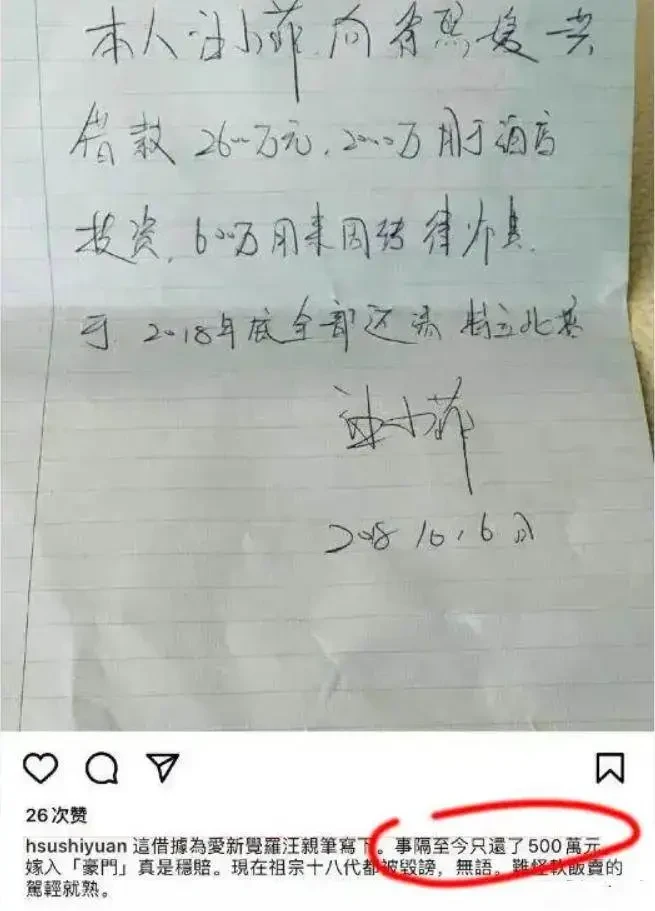 本人汪小菲向徐熙媛共
借款2600万元,2000万用于酒店
投资,600万用来周转律师费.
于2018年底全部还清 特立此据
汪小菲
2018 10.6日
26 次赞
hsushiyuan 這借據為愛新覺羅汪親筆寫下。事隔至今只還了500萬元。
嫁入「豪門」真是穩賠。現在祖宗十八代都被毀謗，無語。難怪軟飯賣的
駕輕就熟。